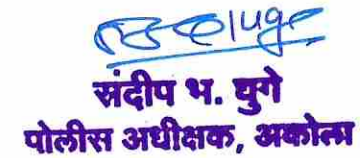 संदीप भ. घुगे
पोलीस अधीक्षक, अकोला